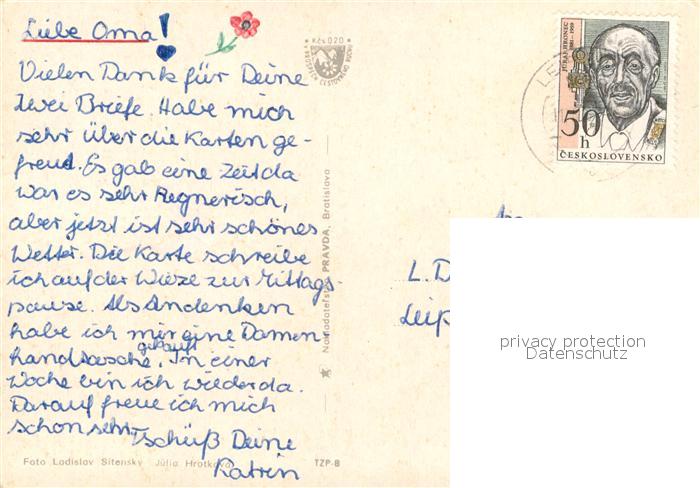 Liebe Oma!
Vielen Dank für Deine
zwei Briefe. Habe mich
sehr über die Karten ge-
freut. Es gab eine Zeit da
war es sehr Regnerisch,
aber jetzt ist sehr schönes
Wetter. Die Karte schreibe
ich auf der Wieze zur Mittags-
pause. Als Andenken
habe ich mir eine Damen-
handtasche gekauft. In einer
Woche bin ich wieder da.
Darauf freue ich mich
schon sehr. Tschüß Deine
Katrin
Foto Ladislav Sitenský Júlia Hrotková TZP-8
Kčs 0,20
Nakladateľstvo PRAVDA, Bratislava
JUR HRONEC
1881 - 1959
50 h
ČESKOSLOVENSKO
L. D
Leip
privacy protection
Datenschutz